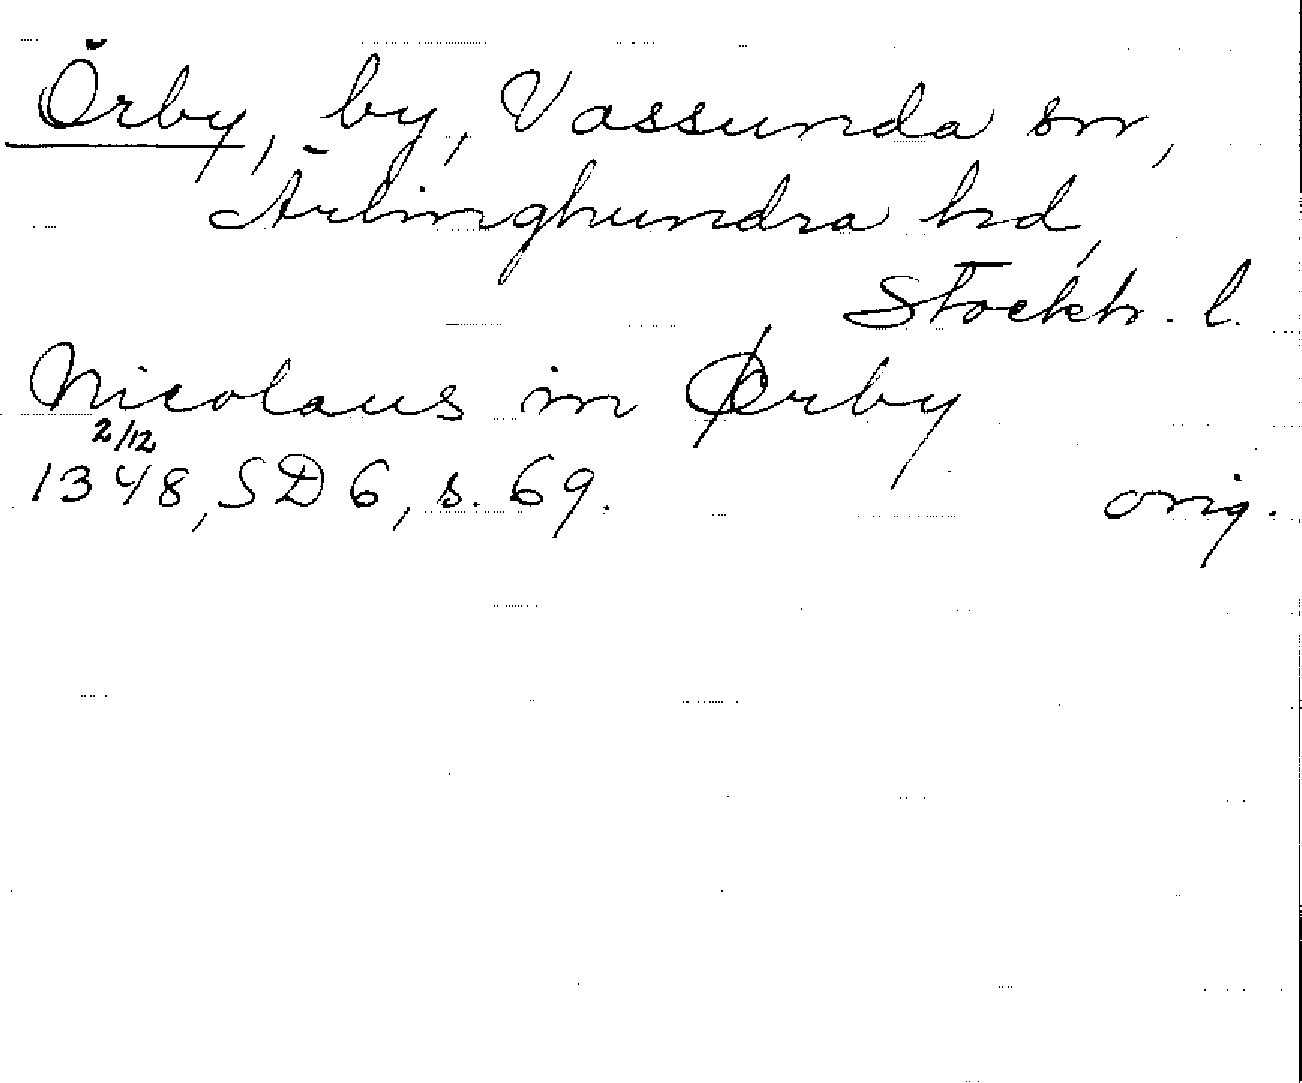 Örby, by, Vassunda sn,
Ärlinghundra hd,
Stockh. l.
Nicolaus in Ørby
2/12
1348, SD 6, s. 69. orig.